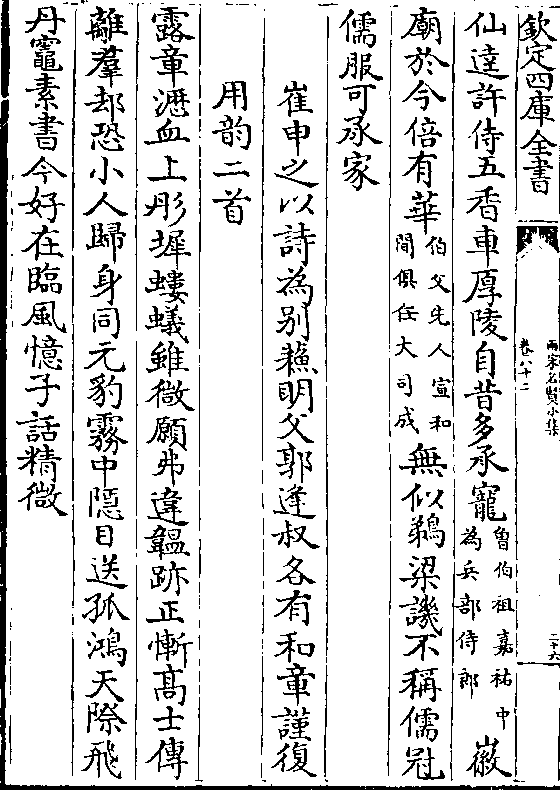 欽定四庫全書
兩宋名賢小集
卷八十二
二十六
仙逵許侍五香車厚陵自昔多承寵魯伯祖嘉祐中為兵部侍郎徽
廟於今倍有華伯父先人宣和間俱任大司成無似鵜梁譏不稱儒冠
儒服可承家
崔申之以詩為别蘓明父郭逢叔各有和章謹復
用韵二首
露章瀝血上彤墀螻蟻雖微願弗違韞跡正慚髙士傳
離羣却恐小人歸身同元豹霧中隱目送孤鴻天際飛
丹竈素書今好在臨風憶子話精微